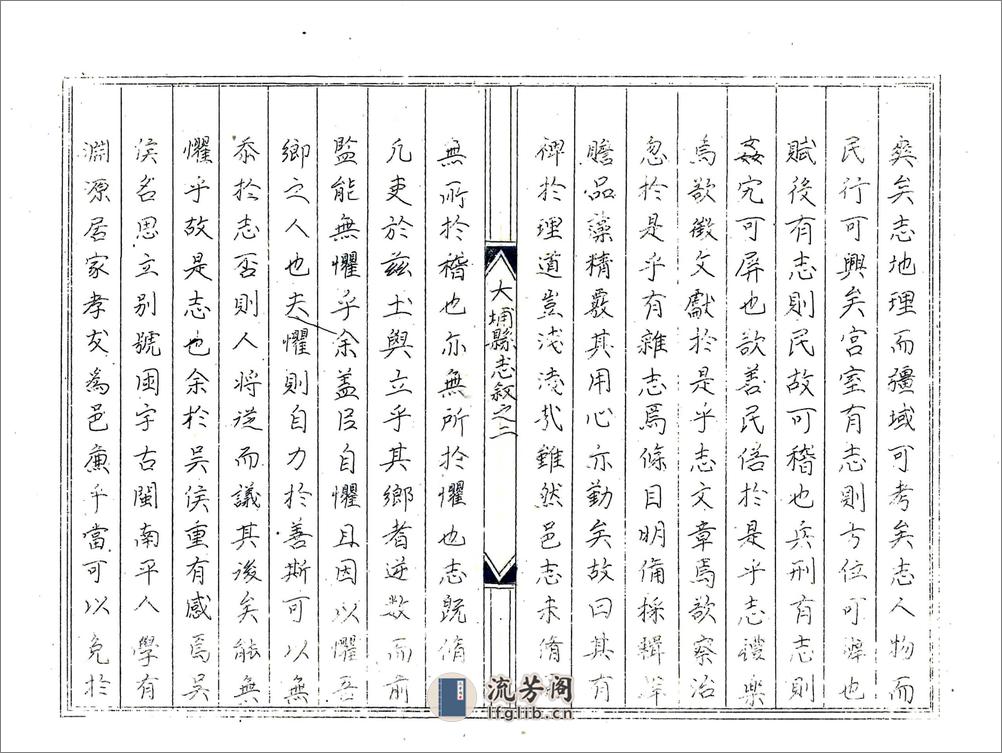 奕矣志地理而疆域可考矣志人物而
民行可興矣宮室有志則方位可㴑也
賦後有志則民故可稽也兵刑有志則
姦宄可屏也欲善民俗於是乎志禮樂
焉欲徵文獻於是乎志文章焉欲察治
忽於是乎有雜志焉條目明備採輯
贍品藻精覈其用心亦勤矣故曰其有
裨於理道豈淺淺哉雖然邑志未脩
大埔縣志叙之二
無所於稽也亦無所於懼也志既脩
凡吏於茲土與立乎其鄉者迹数而前
監能無懼乎余盖臣自懼且因以懼吾
鄉之人也夫懼則自力於善斯可以無
忝於志否則人将從而議其後矣能無
懼乎故是志也余於吳侯重有感焉吳
侯名思立别號國宇古閩南平人學有
淵源居家孝友為邑亷乎當可以免於
流芳阁
lfglib.cn